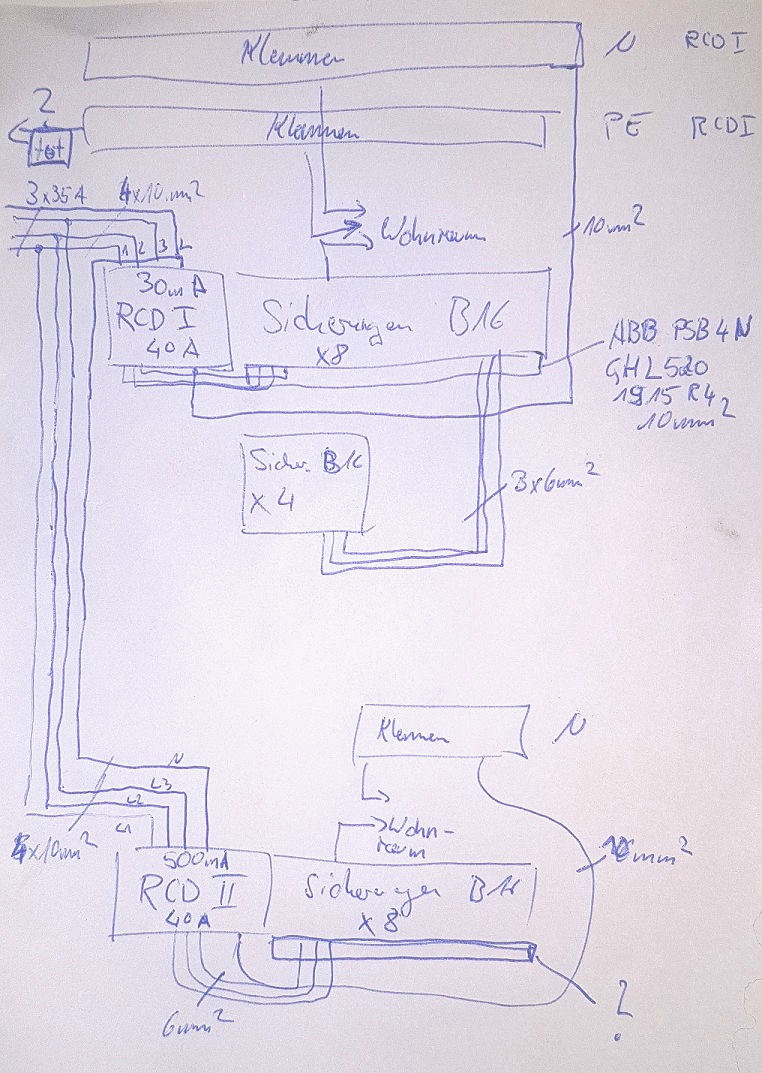 Klemmen
N RCD I
2
Klemmen
PE RCD I
tot
3x35A
4x10mm²
Wohnraum
10mm²
1 2 3
30mA
RCD I
40A
Sicherungen B16
x8
ABB PSB4N
GHL520
1915 R4
10mm²
Sicher. B16
x 4
3x6mm²
Klemmen
N
N
L3
L2
L1
4x10mm²
Wohn-
raum
10mm²
500mA
RCD II
40A
Sicherungen B16
x8
6mm²
?